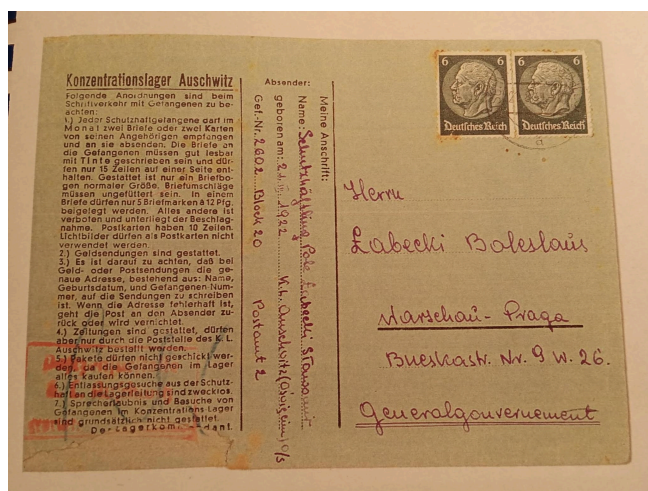 Konzentrationslager Auschwitz
Folgende Anordnungen sind beim
Schriftverkehr mit Gefangenen zu be-
achten:
1.) Jeder Schutzhaftgefangene darf im
Monat zwei Briefe oder zwei Karten
von seinen Angehörigen empfangen
und an sie absenden. Die Briefe an
die Gefangenen müssen gut lesbar
mit Tinte geschrieben sein und dür-
fen nur 15 Zeilen auf einer Seite ent-
halten. Gestattet ist nur ein Briefbo-
gen normaler Größe. Briefumschläge
müssen ungefüttert sein. In einem
Briefe dürfen nur 5 Briefmarken à 12 Pfg.
beigelegt werden. Alles andere ist
verboten und unterliegt der Beschlag-
nahme. Postkarten haben 10 Zeilen.
Lichtbilder dürfen als Postkarten nicht
verwendet werden.
2.) Geldsendungen sind gestattet.
3.) Es ist darauf zu achten, daß bei
Geld- oder Postsendungen die ge-
naue Adresse, bestehend aus: Name,
Geburtsdatum, und Gefangenen-Num-
mer, auf die Sendungen zu schreiben
ist. Wenn die Adresse fehlerhaft ist,
geht die Post an den Absender zu-
rück oder wird vernichtet.
4.) Zeitungen sind gestattet, dürfen
aber nur durch die Poststelle des K. L.
Auschwitz bestellt werden.
5.) Pakete dürfen nicht geschickt wer-
den, da die Gefangenen im Lager
alles kaufen können.
6.) Entlassungsgesuche aus der Schutz-
haft an die Lagerleitung sind zwecklos.
7.) Sprecherlaubnis und Besuche von
Gefangenen im Konzentrations-Lager
sind grundsätzlich nicht gestattet.
Der Lagerkommandant.
Absender:
Meine Anschrift:
Name: Schutzhäftling Pole Łabecki
geboren am: 1922 K.L. Auschwitz O/S
Gef.-Nr. 2602 Block 20 Postamt 2
6 6
Deutsches Reich Deutsches Reich
Herrn
Łabecki Boleslaus
Warschau-Praga
Brueskastr. Nr. 9 w. 26.
Generalgouvernement